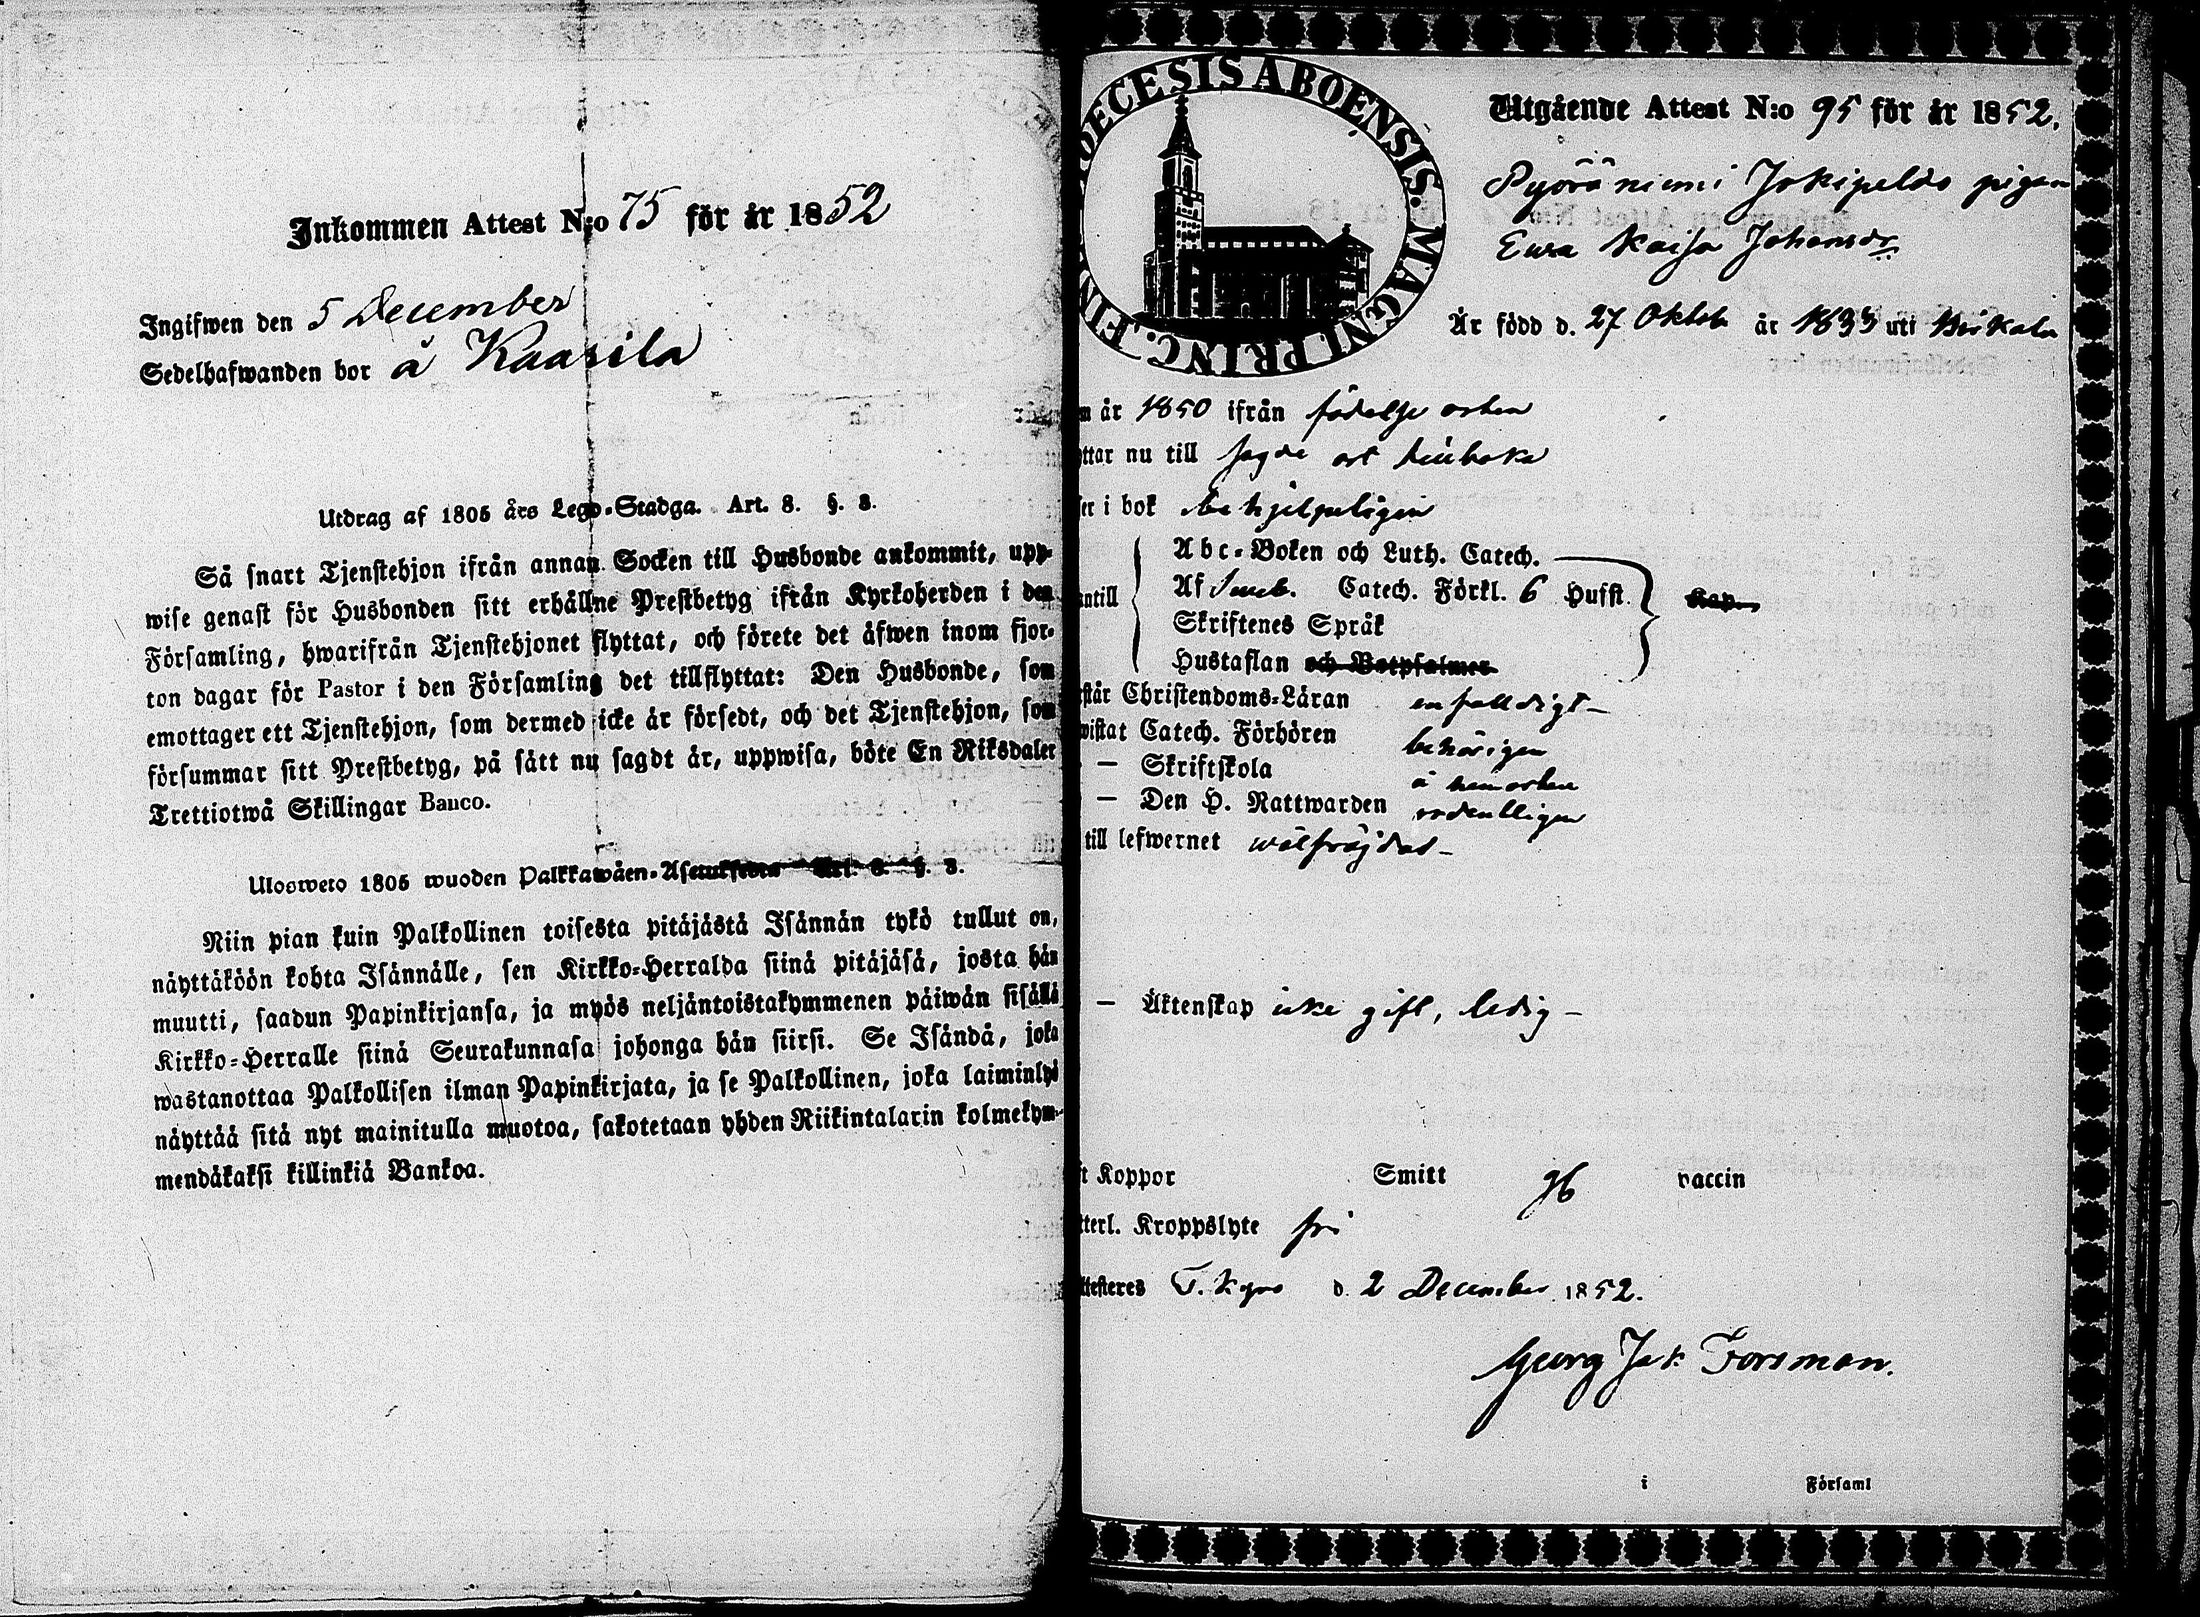 Inkommen Attest N:o 75 för år 1852
Ingifwen den 5 December
Sedelhafwanden bor å Kaarila
Utdrag af 1805 års Lego-Stadga. Art. 8. §. 3.
Så snart Tjenstehjon ifrån annan Socken till Husbonde ankommit, upp-
wise genast för Husbonden sitt erhållne Prestbetyg ifrån Kyrkoherden i den
Församling, hwarifrån Tjenstehjonet flyttat, och förete det äfwen inom fjor-
ton dagar för Pastor i den Församling det tillflyttat: Den Husbonde, som
emottager ett Tjenstehjon, som dermed icke är försedt, och det Tjenstehjon, som
försummar sitt Prestbetyg, på sätt nu sagdt är, uppwisa, böte En Riksdaler
Trettiotwå Skillingar Banco.
Ulosweto 1805 wuoden Palkkawäen-Asetuksesta Art. 8. §. 3.
Niin pian kuin Palkollinen toisesta pitäjästä Isännän tykö tullut on,
näyttäköön kohta Isännälle, sen Kirkko-Herralda siinä pitäjäsä, josta hän
muutti, saadun Papinkirjansa, ja myös neljäntoistakymmenen päiwän sisällä
Kirkko-Herralle siinä Seurakunnasa johonga hän siirsi. Se Isändä, joka
wastanottaa Palkollisen ilman Papinkirjata, ja se Palkollinen, joka laiminlyö
näyttää sitä nyt mainitulla muotoa, sakotetaan yhden Riikintalarin kolmekym-
mendäkaksi killinkiä Bankoa.
DIOECESIS ABOENSIS. MAGNI PRINC. FIN
Utgående Attest N:o 95 för år 1852.
Pyöräniemi Jokipelds pigan
Ewa Kaisa Johansdr
Är född d. 27 Oktob. år 1833 uti Birkala
m år 1850 ifrån födelse orten
ttar nu till sagde ort tillbaka
ser i bok behjelpeligen
Abc-Boken och Luth. Catech.
antill Af Catech. Förkl. 6 Hufst.
Skriftenes Språk
Hustaflan och Botpsalmer
står Christendoms-Läran enfalldigt
wistat Catech. Förhören behörigen
— Skriftskola å hemorten
— Den H. Nattwarden ordentligen
till lefwernet wälfräjdad
— Äktenskap icke gift, ledig
ft Koppor Smitt gb vaccin
tterl. Kroppslyte fri
ttesteres T. Kyro d. 2 December 1852.
Georg Jak. Forsman.
i Församl